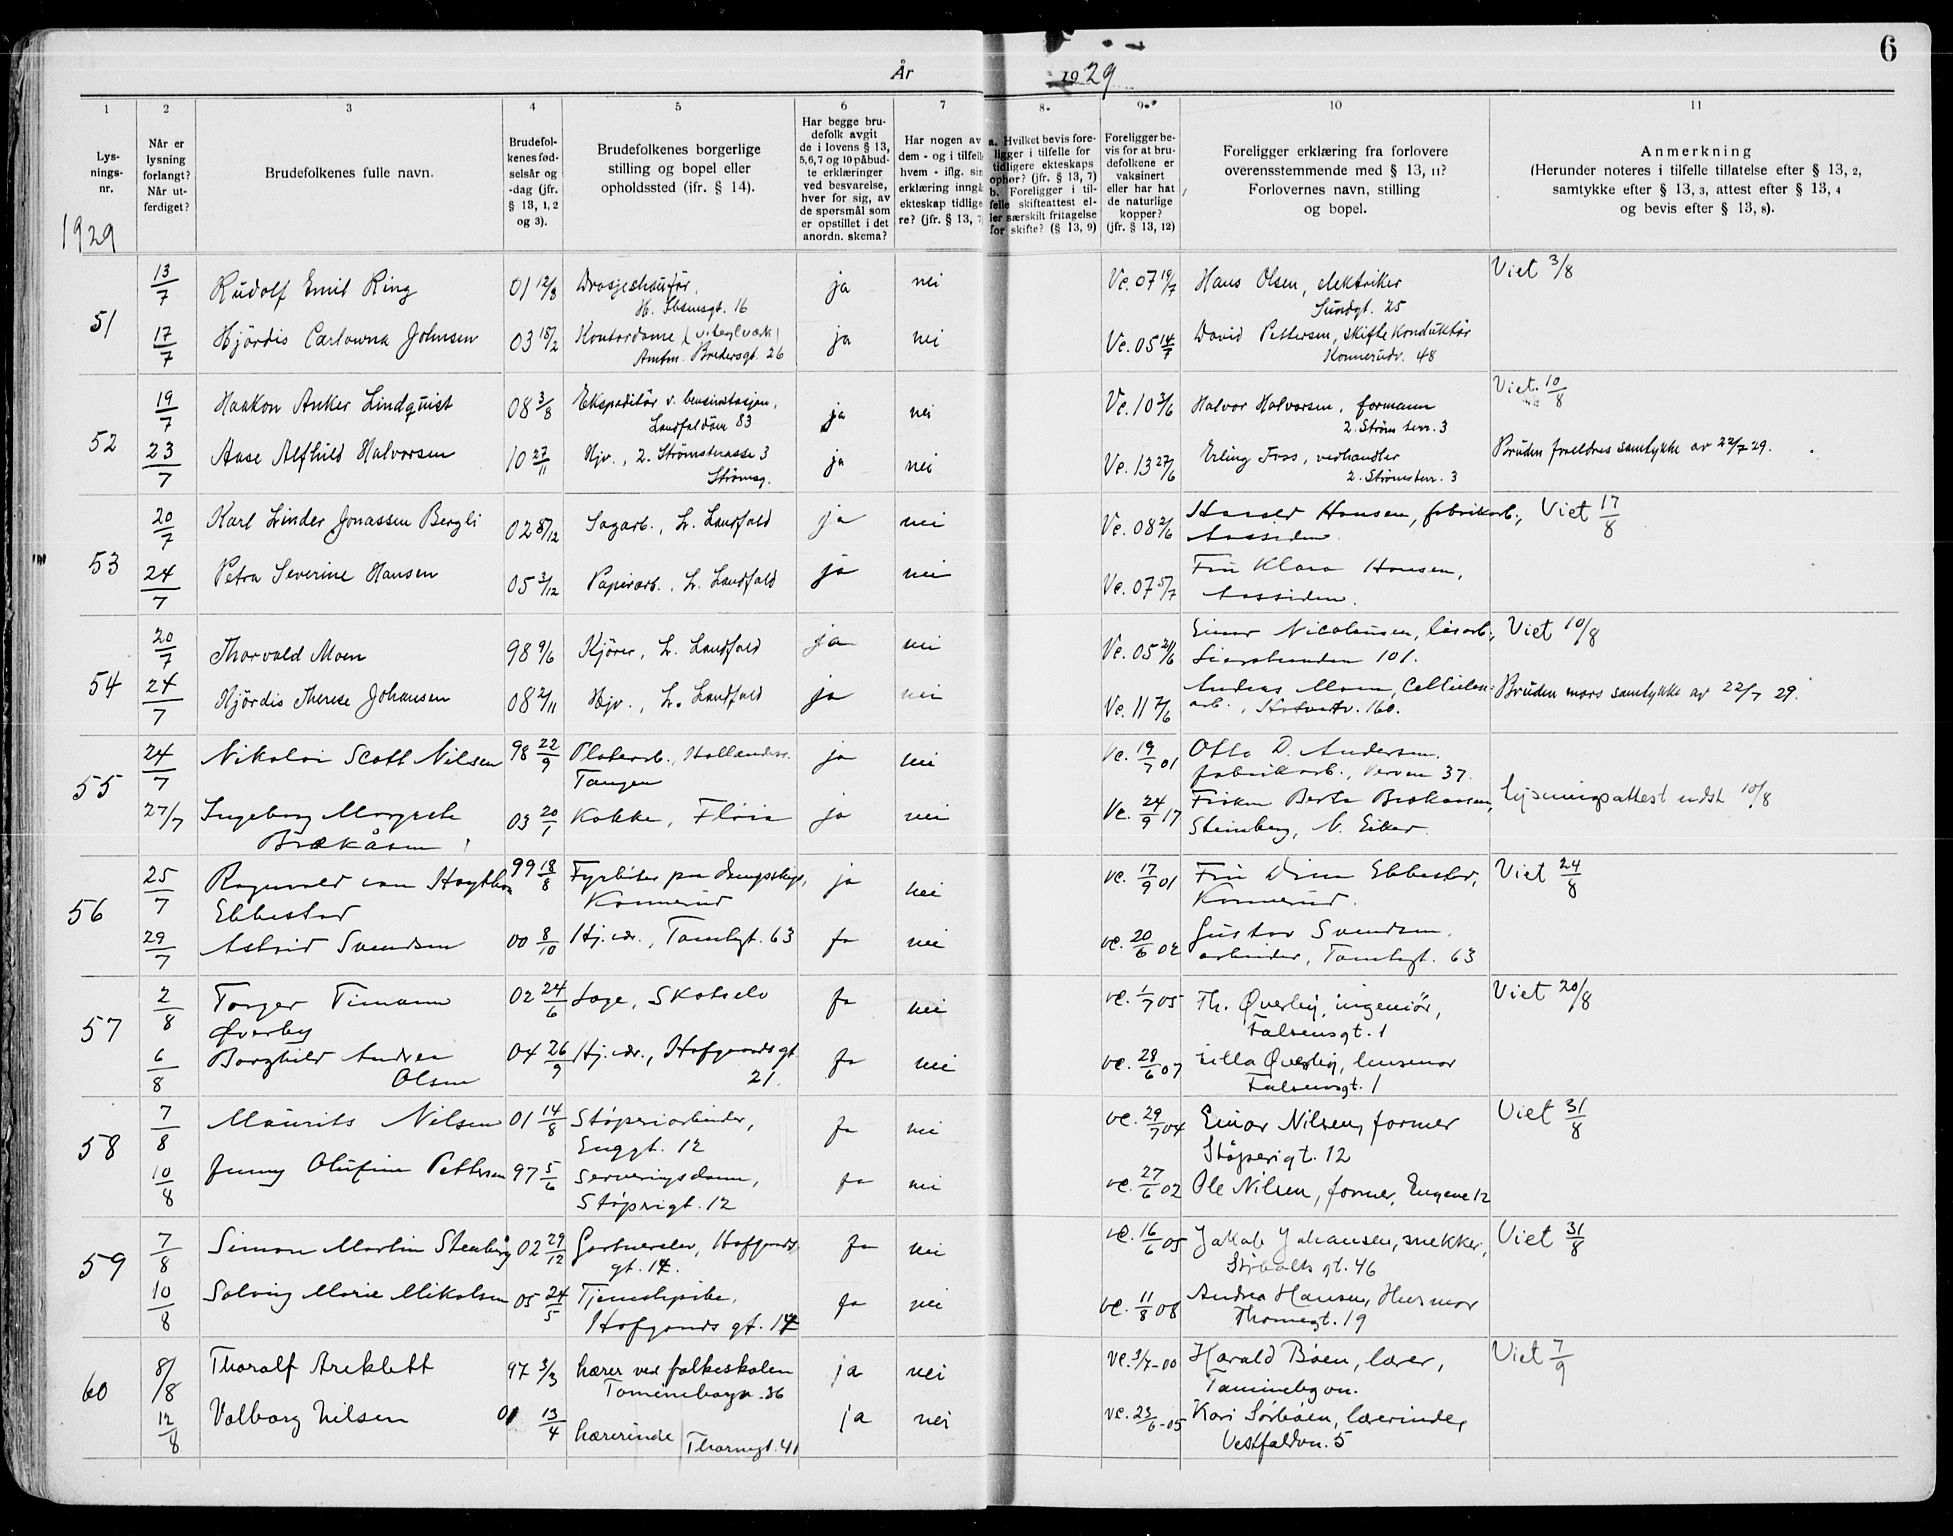 År 1929
6
1 2 3 4 5 6 7 8. 9. 10 11
Lys-
nings-
nr.
Når er
lysning
forlangt?
Når ut-
ferdiget?
Brudefolkenes fulle navn.
Brudefol-
kenes fød-
selsår og
-dag (jfr.
§ 13, 1, 2
og 3).
Brudefolkenes borgerlige
stilling og bopel eller
opholdssted (ifr. § 14).
Har begge bru-
defolk avgit
de i lovens § 13,
5,6,7 og 10 påbud-
te erklæringer
ved besvarelse,
hver for sig, av
de spørsmål som
er opstillet i det
anordn. skema?
Har nogen av
dem - og i tilfelle
hvem - iflg. sin
erklæring inngå
ekteskap tidlige
re? (jfr. § 13, 7
a. Hvilket bevis fore-
ligger i tilfelle for
tidligere ekteskaps
ophør? (jfr. § 13, 7)
b. Foreligger i til-
felle skifteattest el-
ler særskilt fritagelse
for skifte? (§ 13, 9)
Foreligger be-
vis for at bru-
defolkene er
vaksinert
eller har hat
de naturlige
kopper?
(jfr. § 13, 12)
Foreligger erklæring fra forlovere
overensstemmende med § 13, 11?
Forlovernes navn, stilling
og bopel.
Anmerkning
(Herunder noteres i tilfelle tillatelse efter § 13, 2,
samtykke efter § 13, 3, attest efter § 13, 4
og bevis efter § 13, 8).
1929
51
13/7 Rudolf Emil Ring 01 12/8 Drosjeshauför, ja nei Vc. 07 19/7 Hans Olsen, elektriker Viet 3/8
H. Ibsensgt. 16 Sundgt. 25
17/7 Hjördis Carlowna Johnsen 03 18/2 Kontordame ja nei Vc. 05 14/7 David Pettersen, skiftekonduktör
Amtm. Bredersgt. 26 Konnerudv. 48
52
19/7 Haakon Anker Lindquist 08 3/8 Ekspeditör v. bensinstasjon, ja nei Vc. 10 3/6 Halvor Halvorsen, formann Viet. 10/8
Landfaldöen 83 2. Strøm terr. 3
23/7 Aase Alfhild Halvorsen 10 27/11 Hjv., 2. Strömsterasse 3 ja nei Vc. 13 27/6 Erling Foss, vedhandler Bruden foreldres samtykke av 22/7 29.
Strömsg. 2. Strömsterr. 3
53
20/7 Karl Linder Jonassen Bergli 02 8/12 Sagarb., L. Landfald ja nei Vc. 08 2/6 Harald Hansen, fabrikarb., Viet 17/8
Aassiden.
24/7 Petra Severine Hansen 05 3/12 Papirarb., L. Landfald ja nei Vc. 07 5/7 Fru Klara Hansen,
Aassiden.
54
20/7 Thorvald Moen 98 9/6 Kjörer, L. Landfald ja nei Vc. 05 21/6 Einar Nicolaisen, Viet 10/8
Lierstranden 101.
24/7 Hjördis Therese Johansen 08 2/11 Hjv., L. Landfald ja nei Vc. 11 7/6 Andreas Moen, Cellulose- Bruden mors samtykke av 22/7 29.
arb., 160.
55
24/7 Nikolai Scott Nilsen 98 22/9 Platearb., ja nei Vc. 19/7 01 Otto D. Andersen.
Tangen fabrikarb., Verven 37.
27/7 Ingeborg Margrete 03 20/1 Kokke, ja nei Vc. 24/9 17 Frøken Berta Brekåsen, Lysningsattest utst 10/8
Brækåsen Steinberg, N. Eiker.
56
25/7 Ragnvald van Haythen 99 18/8 Fyrbøter paa dampskip, ja nei vc. 17/9 01 Fru Ebbestad, Viet 24/8
Ebbestad Konnerud Konnerud.
29/7 Astrid Svendsen 00 8/10 Hj. vær., Tomtegt. 63 ja nei vc. 20/6 02 Gustav Svendsen.
arbeider, Tomtegt. 63
57
2/8 Torger Timann 02 24/6 Lege, Skotselv ja nei vc. 1/7 05 Th. Øverby, ingeniör, Viet 20/8
Øverby Falsensgt. 1
6/8 Borghild Andrea 04 26/9 Hj. vær., Hofgaards gt ja nei vc. 28/6 07 Lilla Øverby, husmor
Olsen 21. Falsensgt. 1
58
7/8 Maurits Nilsen 01 14/8 Støperiarbeider, ja nei vc. 29/7 04 Einar Nilsen, former Viet 31/8
Enggt. 12 Støperigt. 12
10/8 Jenny Olufine Pettersen 97 5/6 Serveringsdame, ja nei vc. 27/6 02 Ole Nilsen, former, Engene 12
Støperigt. 12
59
7/8 Simon Martin Stenberg 02 29/12 Gartnerelev, Hofgaards ja nei vc. 16/6 05 Jakob Johansen, snekker, Viet 31/8
gt. 14. gt. 46
10/8 Solveig Marie Mikalsen 05 24/5 Tjenestepike, ja nei vc. 11/8 08 Andrea Hansen, Husmor
Hofgaards gt. 14 Thornegt. 19
60
8/8 Thoralf Areklett 97 3/3 Lærer ved folkeskolen ja nei vc. 3/7-00 Harald Bøen, lærer, Viet 7/9
Tominebogn. 36 Tominebgvn.
12/8 Valborg Nilsen 01 13/4 Lærerinde Thornegt. 41 ja nei vc. 23/6-05 Kari Sørbøen, lærerinde,
Vestfaldvn. 5